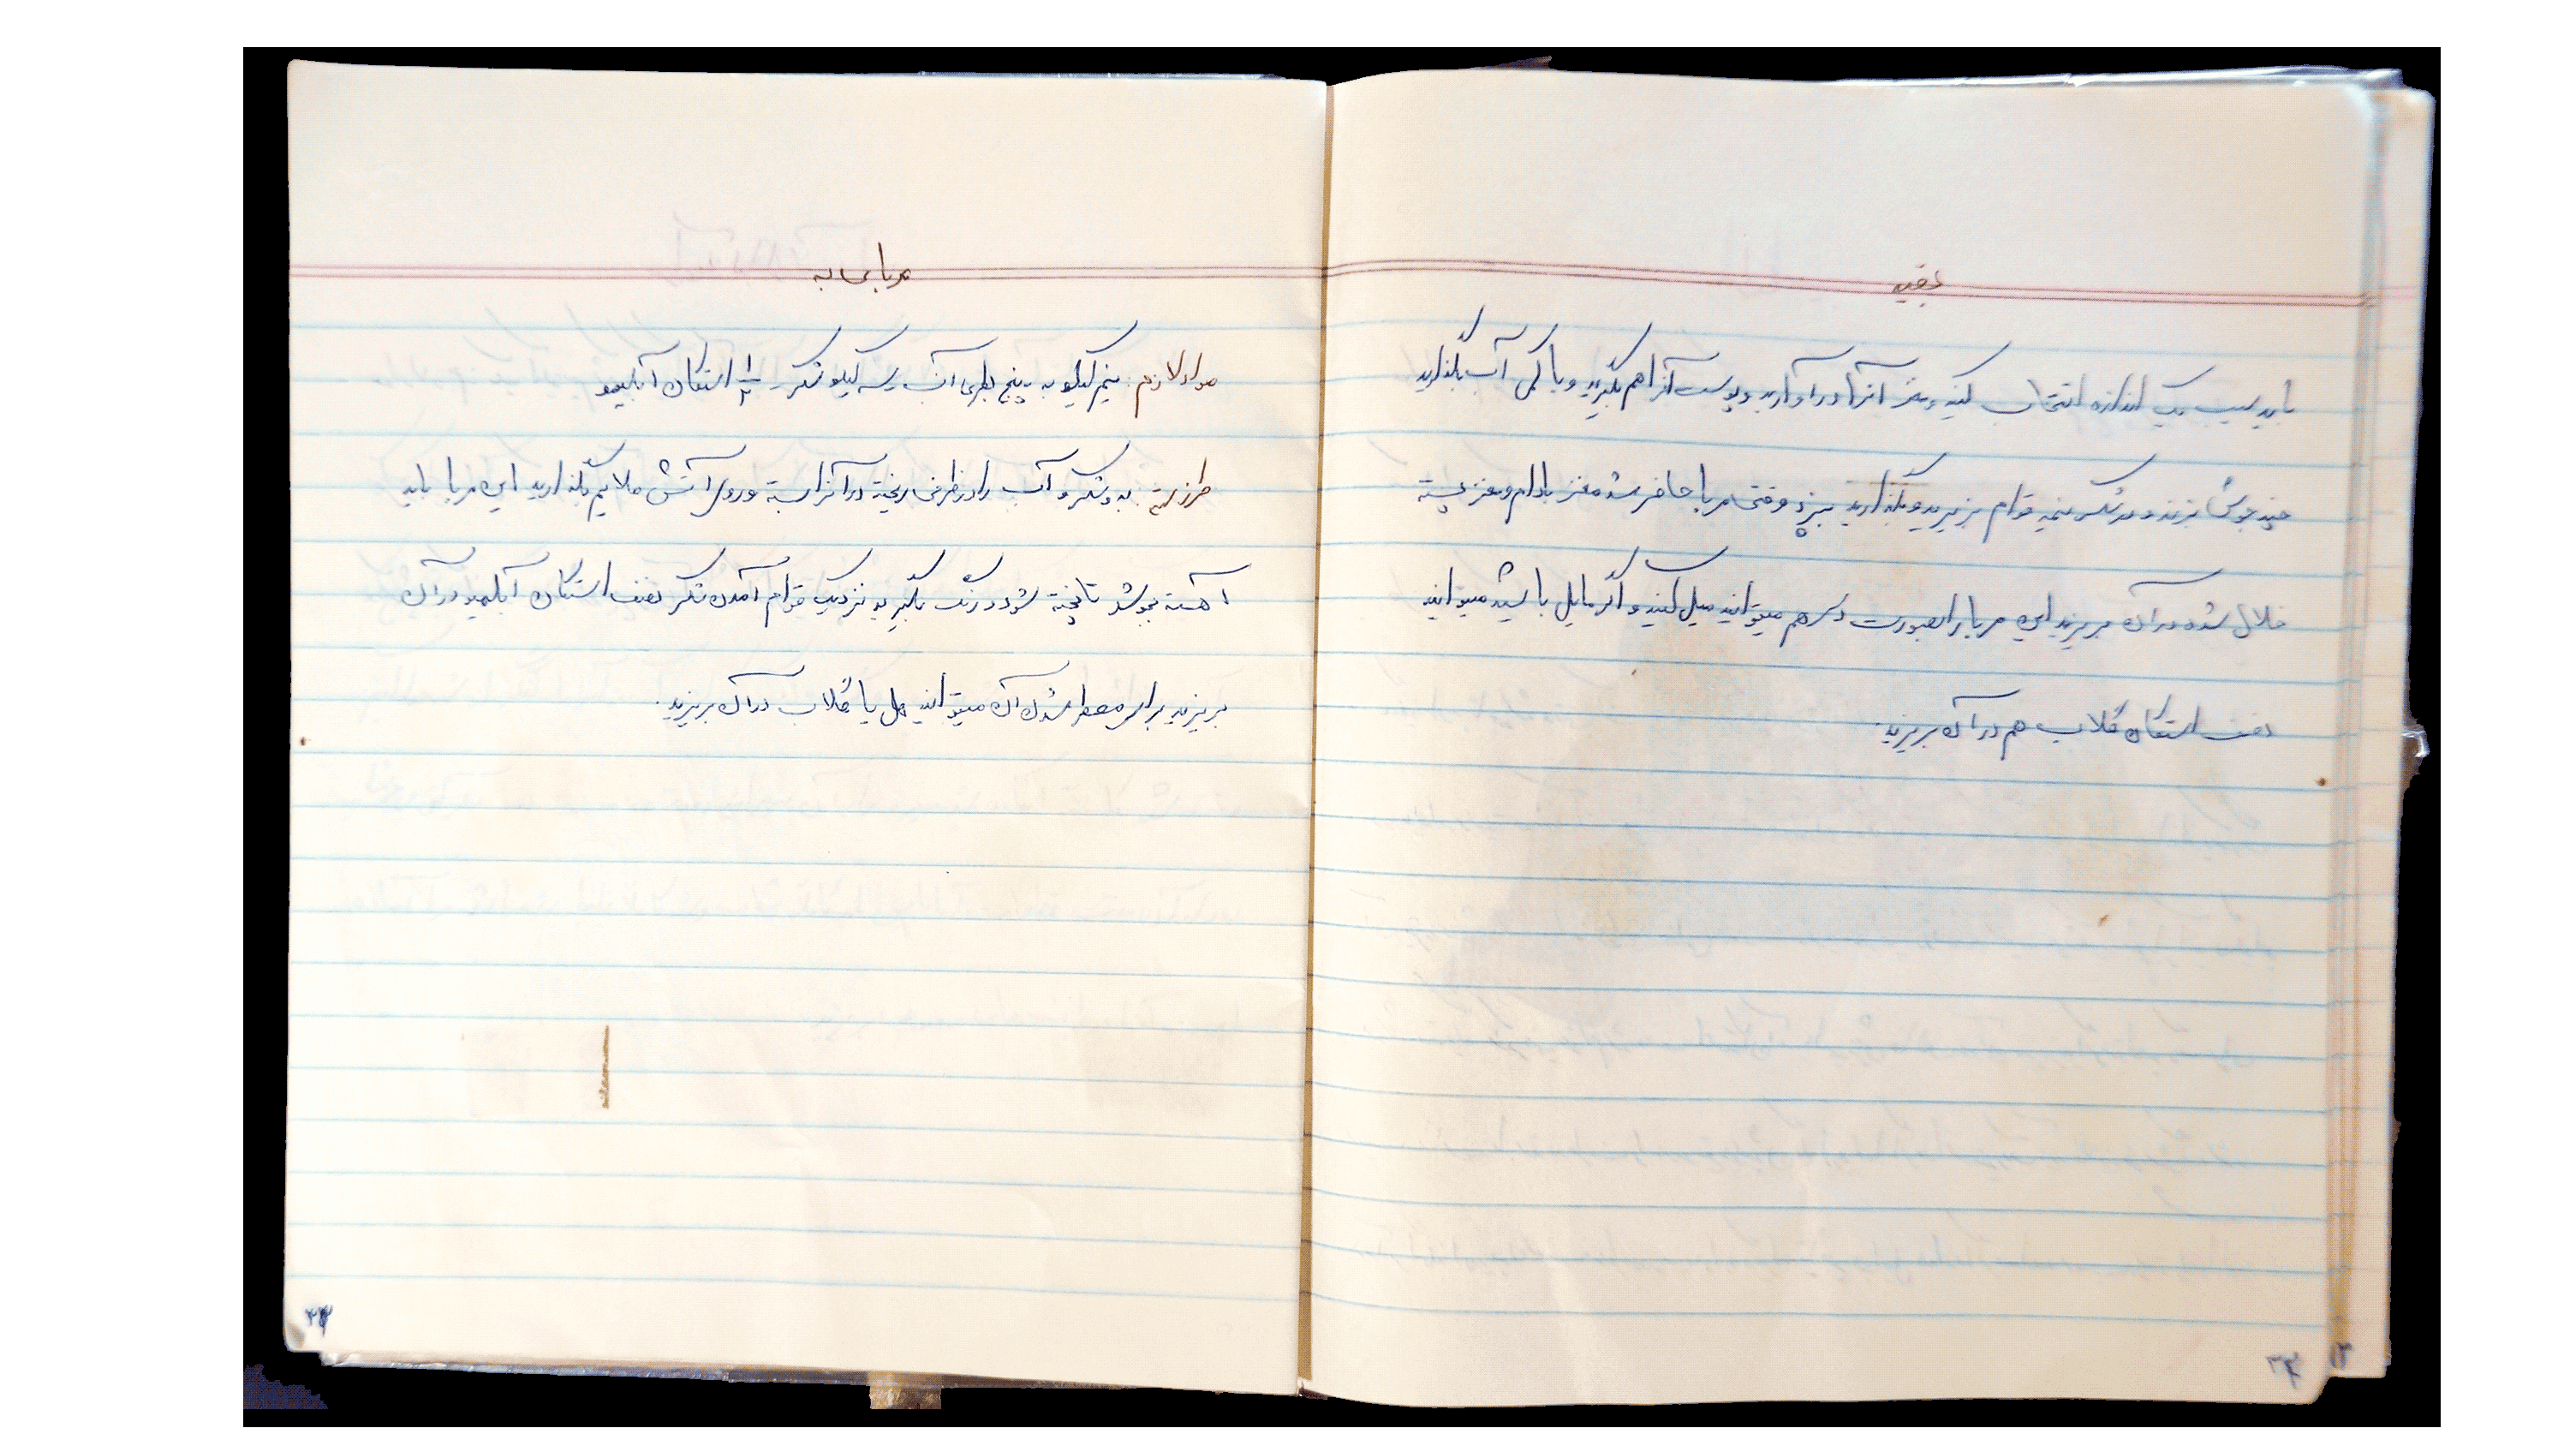 بقیه
باید سیب یک اندازه انتخاب کنید و مغز آنرا در آورید و پوست آنرا هم بگیرید و با کمی آب بگذارید
چند جوش بزند و در شکر نیمه قوام بریزید و بگذارید بپزد وقتی مربا حاضر شد مغز بادام و مغز پسته
خلال شده در آن بریزید این مربا را بصورت دسر هم میتوانید میل کنید و اگر مایل باشید میتوانید
نصف استکان گلاب هم در آن بریزید.
مربای به
مواد لازم: نیم کیلو به - پنج بطری آب - سه کیلو شکر - ۱/۲ استکان آبلیمو
طرز تهیه: به و شکر و آب را در ظرفی ریخته در آنرا بسته و روی آتش ملایم بگذارید این مربا باید
آهسته بجوشد تا پخته شود و رنگ بگیرد نزدیک قوام آمدن شکر نصف استکان آبلیمو در آن
بریزید برای معطر شدن آن میتوانید هل یا گلاب در آن بریزید.